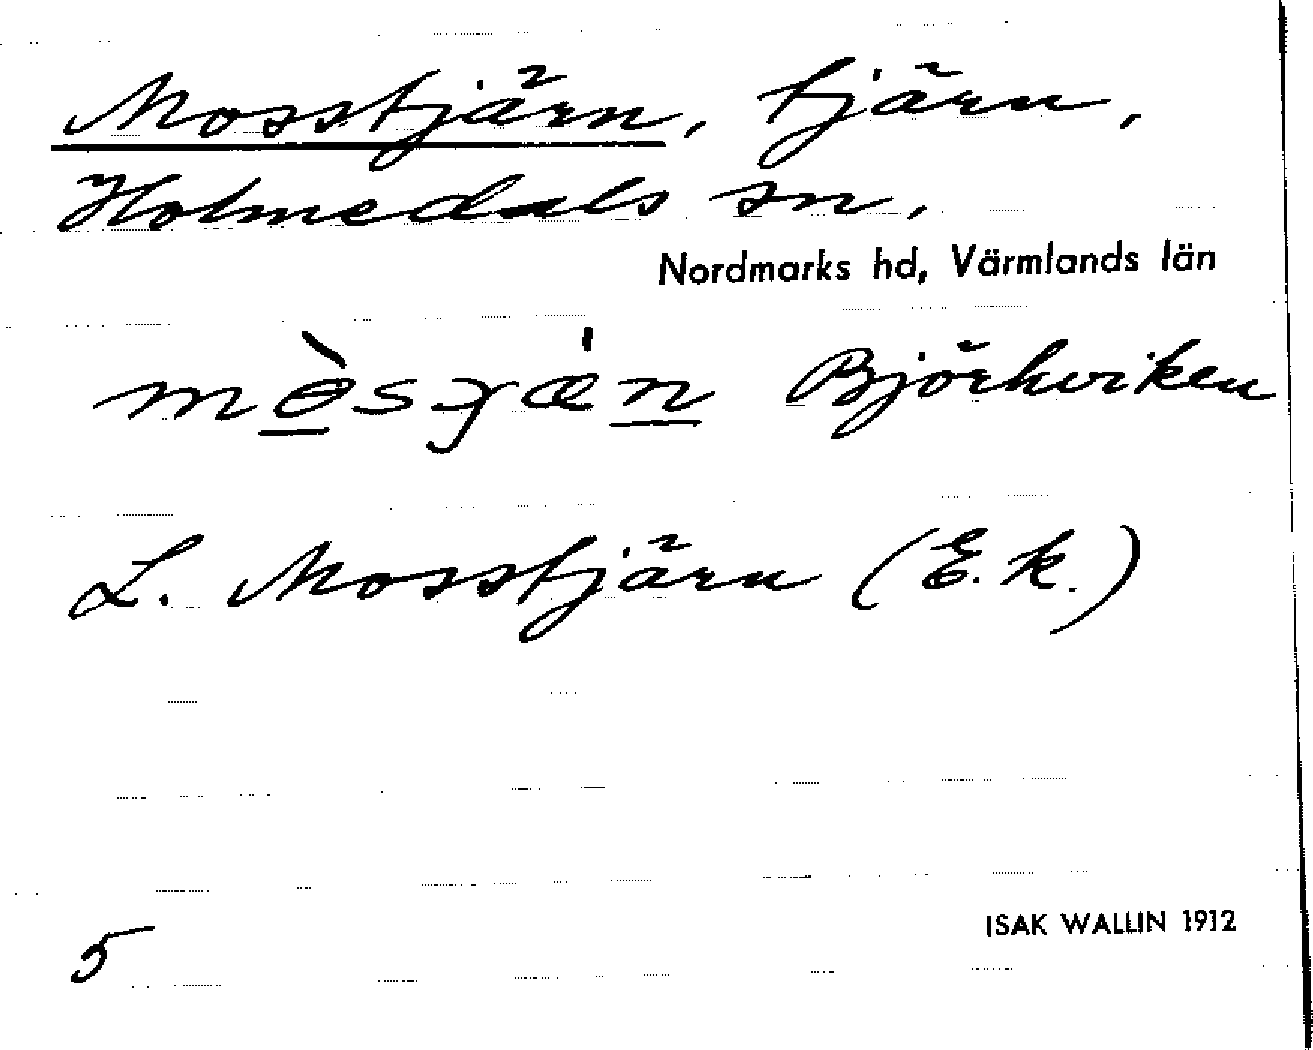 Mosstjärn, tjärn,
Holmedals sn,
Nordmarks hd, Värmlands län
Björkviken
L. Mosstjärn (E. k.)
5
ISAK WALLIN 1912